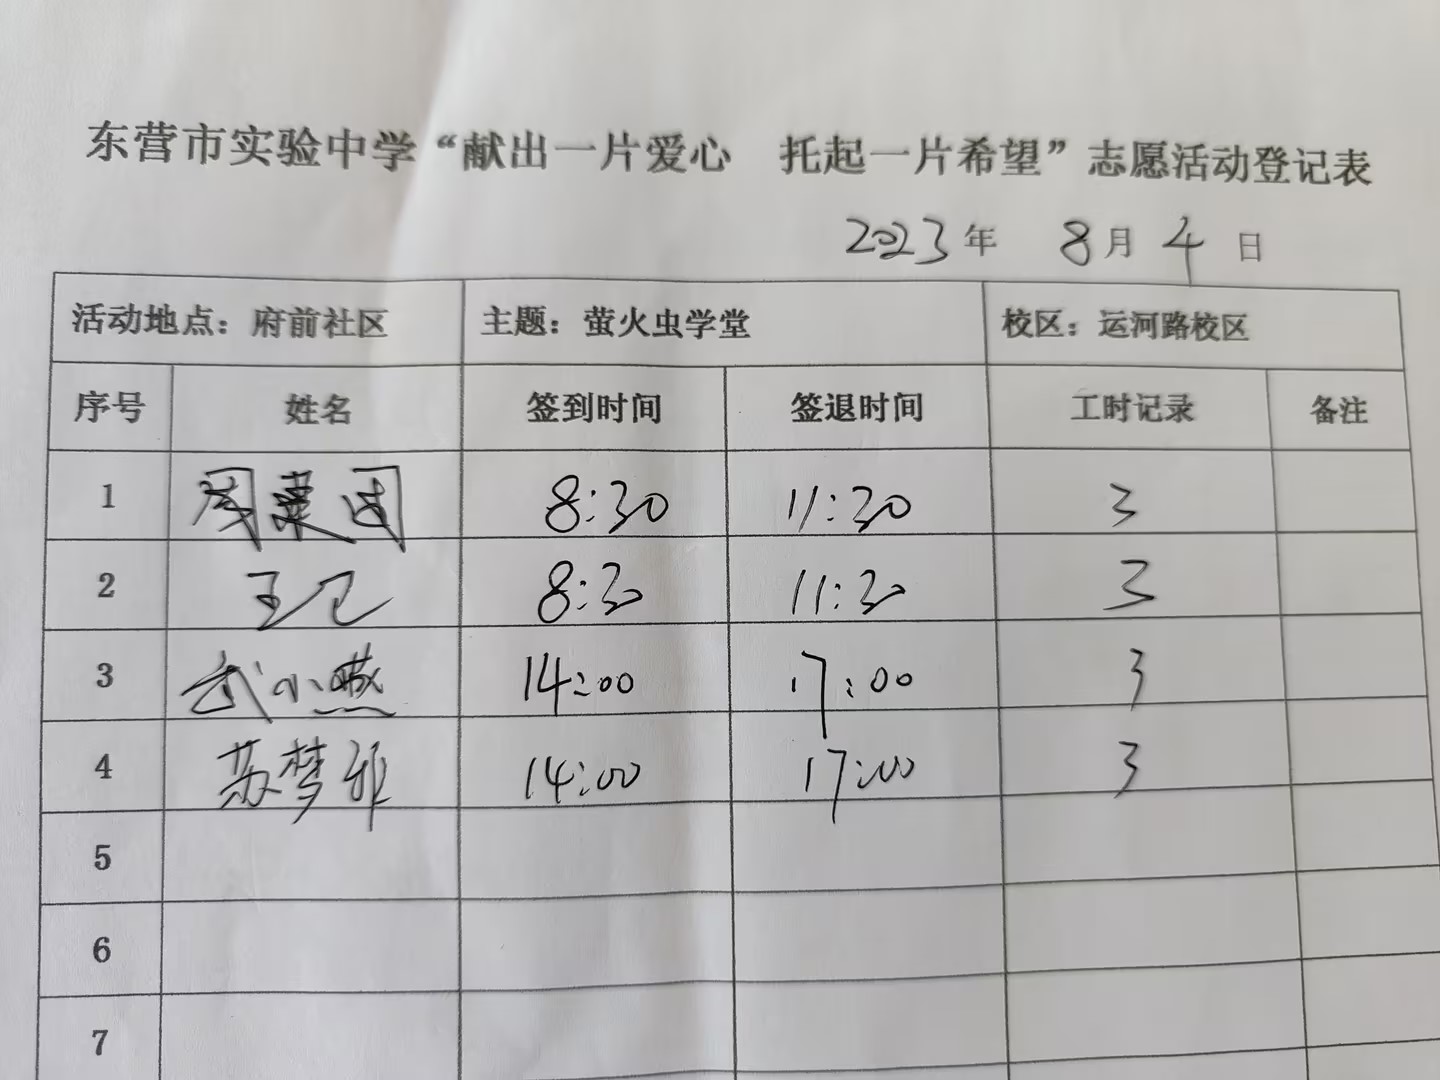 东营市实验中学“献出一片爱心 托起一片希望”志愿活动登记表
2023年 8月 4日
活动地点：府前社区 主题：萤火虫学堂 校区：运河路校区
序号 姓名 签到时间 签退时间 工时记录 备注
1 周 8:30 11:30 3
2 王 8:30 11:30 3
3 武小燕 14:00 17:00 3
4 苏梦雅 14:00 17:00 3
5
6
7